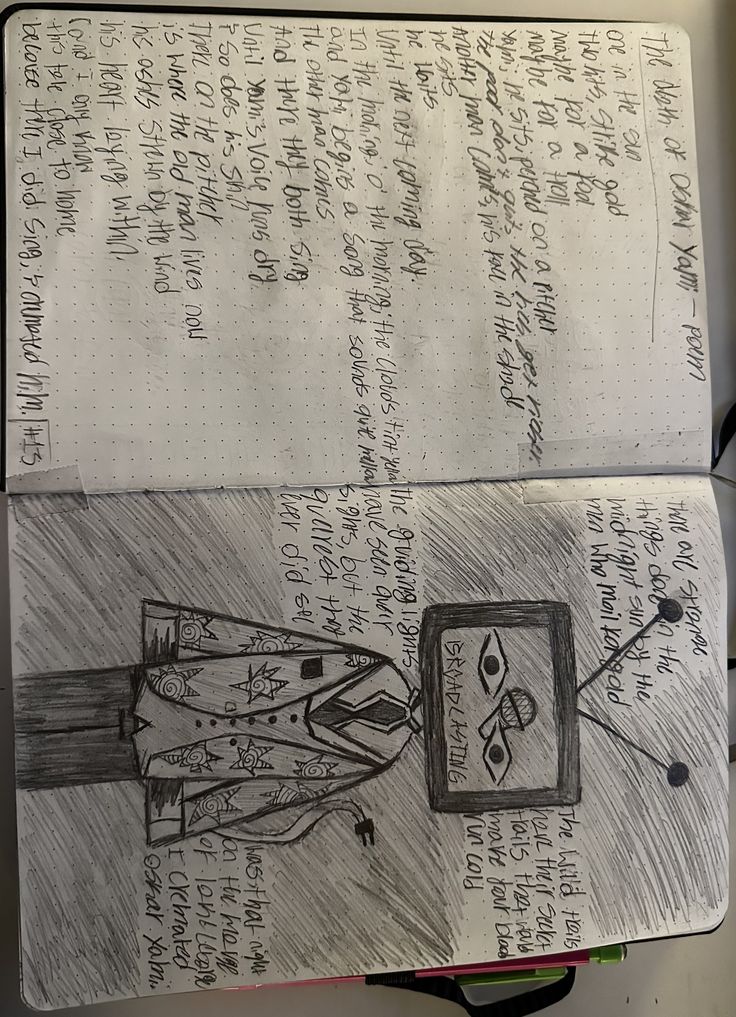 The Myth of Oskar Yarim - poem
one in the sea
two his, strike god
maybe for a fox
maybe for a troll
Yarim, he sits perched on a pitchd
the poor dog's
another man comes, his in the
he sits
he waits
until the next coming day.
In the morning, o the morning, the clouds
and Yarim begins a song that sounds quite hollow
the other man comes
And there they both sing
Until Yarim's voice runs dry
& so does his
then on the pitcher
is where the old man lives now
his ashes strewn by the wind
his heart laying within
Could I only know
this tale close to home
because then I did sing, & cremated him. #13
There are strange
things done in the
midnight sun by the
men who moil for gold
The wild trails
have their secret
tails that would
make your blood
run cold
The guiding lights
have seen quer
sights, but the
quarest they
ever did see
was that night
on the marge
of
I cremated
oskar Yarim.
BROADCASTING